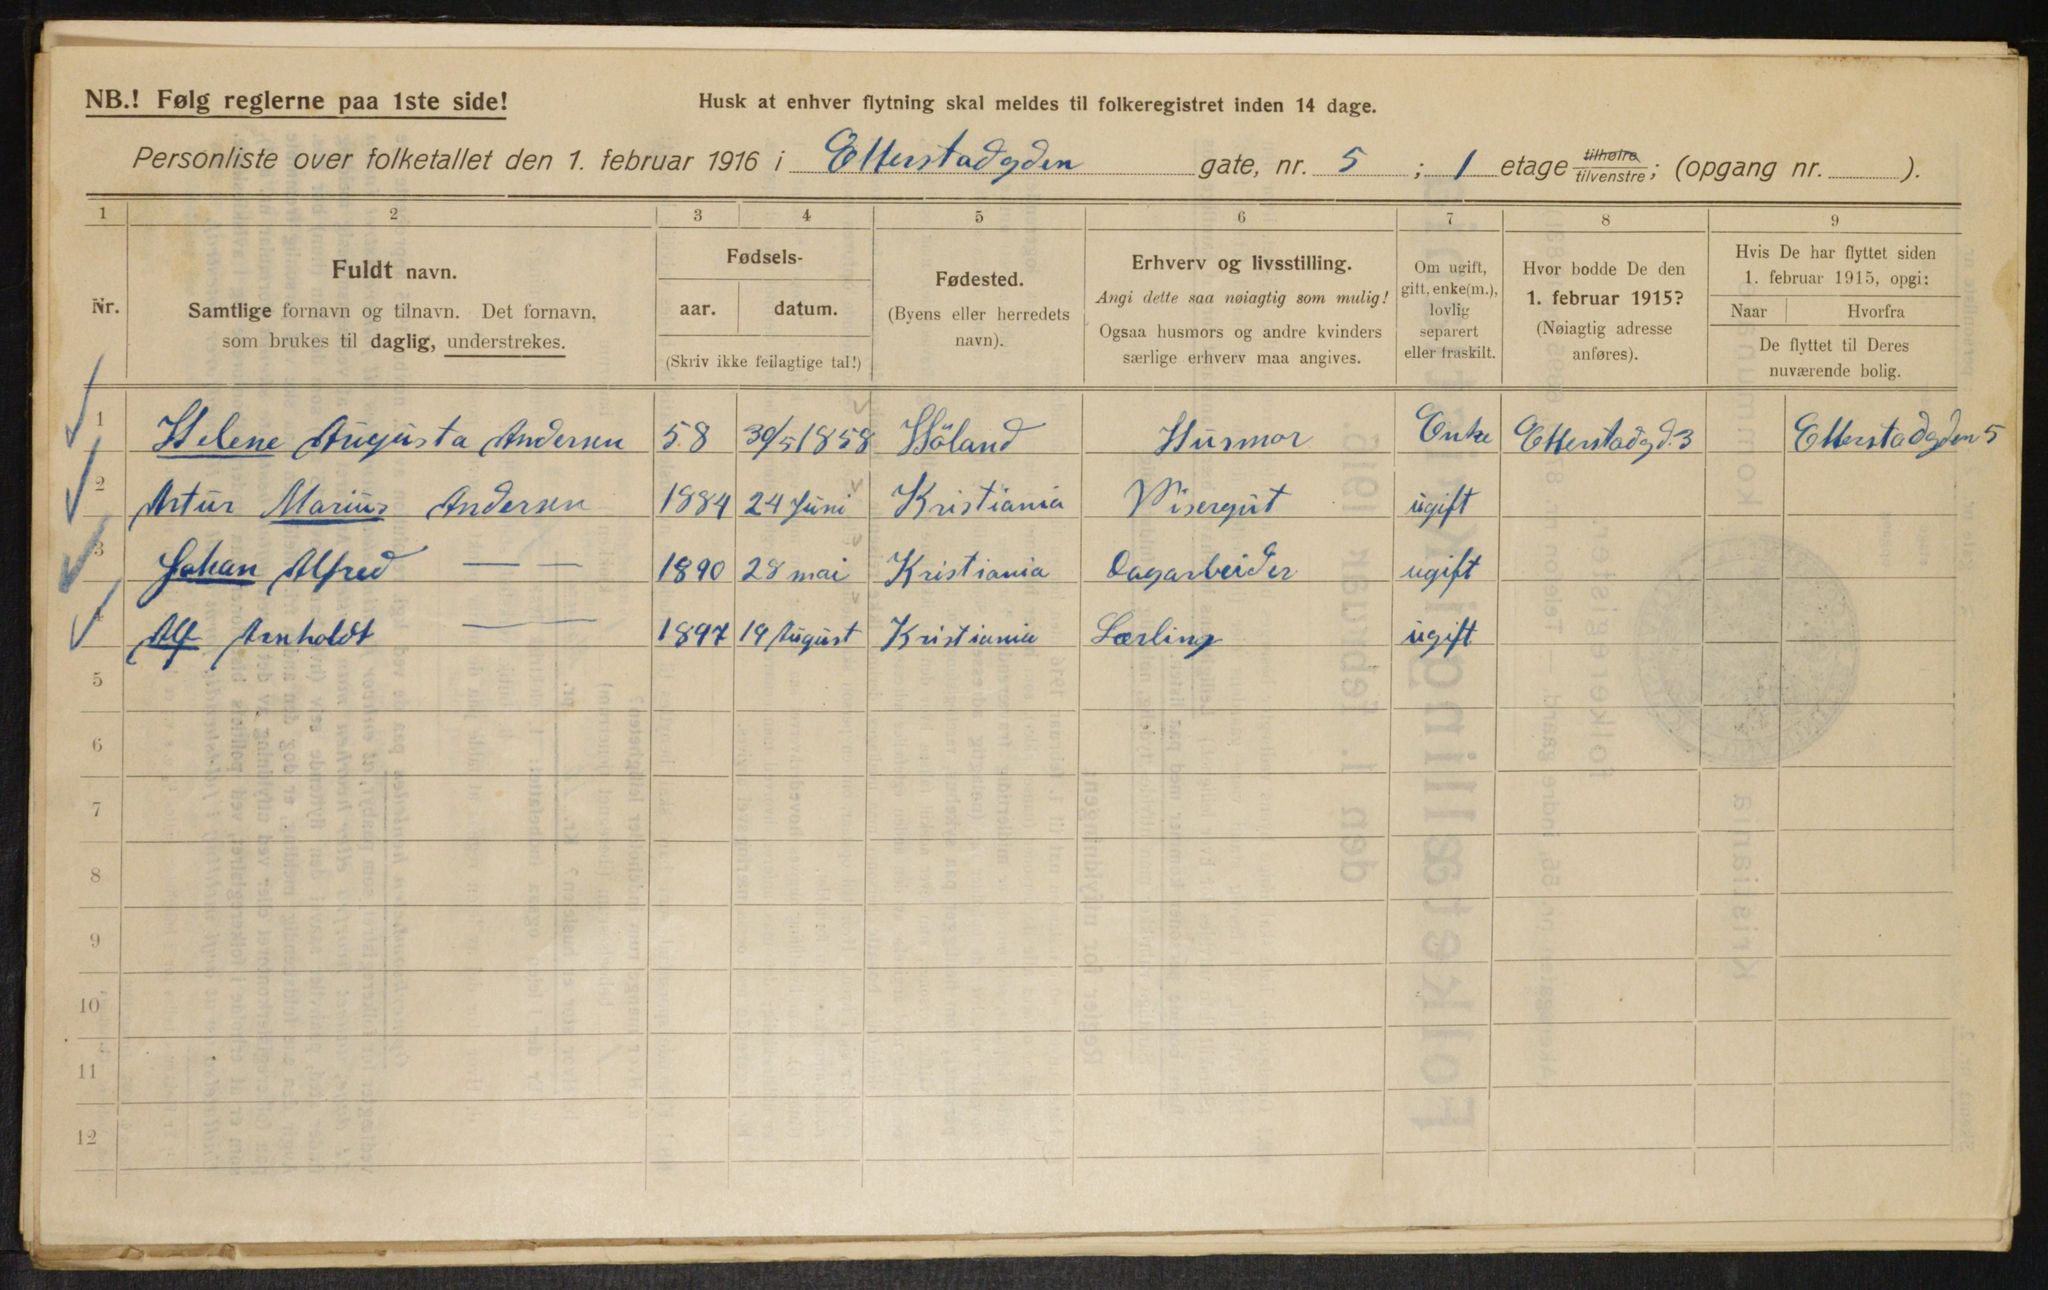 NB.! Følg reglerne paa 1ste side!
Husk at enhver flytning skal meldes til folkeregistret inden 14 dage.
Personliste over folketallet den 1. februar 1916 i Etterstadgden gate, nr. 5 ; 1 etage tilhøire tilvenstre; (opgang nr. ).
1 2 3 4 5 6 7 8 9
Nr.
Fuldt navn.
Samtlige fornavn og tilnavn. Det fornavn,
som brukes til daglig, understrekes.
Fødsels-
aar. datum.
(Skriv ikke feilagtige tal!)
Fødested.
(Byens eller herredets
navn).
Erhverv og livsstilling.
Angi dette saa nøiagtig som mulig!
Ogsaa husmors og andre kvinders
særlige erhverv maa angives.
Om ugift,
gift, enke(m.),
lovlig
separert
eller fraskilt.
Hvor bodde De den
1. februar 1915?
(Nøiagtig adresse
anføres).
Hvis De har flyttet siden
1. februar 1915, opgi:
Naar Hvorfra
De flyttet til Deres
nuværende bolig.
1 Helene Augusta Andersen 58 30/5 1858 Höland Husmor Enke Etterstadgd. 3 Etterstadgden 5
2 Artur Marius Andersen 1884 24 Juni Kristiania Visergut ugift
3 Johan Alfred — — 1890 28 mai Kristiania Dagarbeider ugift
4 Alf Arnholdt — — 1897 19 August Kristiania Lærling ugift
5
6
7
8
9
10
11
12